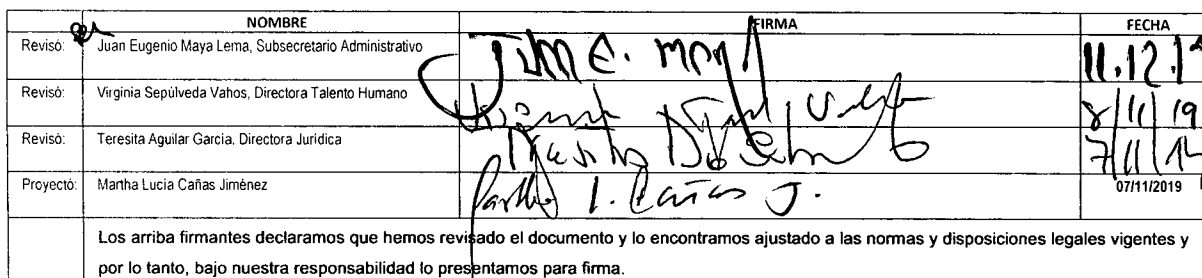 NOMBRE FIRMA FECHA
Revisó: Juan Eugenio Maya Lema, Subsecretario Administrativo Juan E. Maya 11.12.19
Revisó: Virginia Sepúlveda Vahos, Directora Talento Humano 8/11/19
Revisó: Teresita Aguilar García, Directora Jurídica 7/11/19
Proyectó: Martha Lucía Cañas Jiménez Martha L. Cañas J. 07/11/2019
Los arriba firmantes declaramos que hemos revisado el documento y lo encontramos ajustado a las normas y disposiciones legales vigentes y
por lo tanto, bajo nuestra responsabilidad lo presentamos para firma.